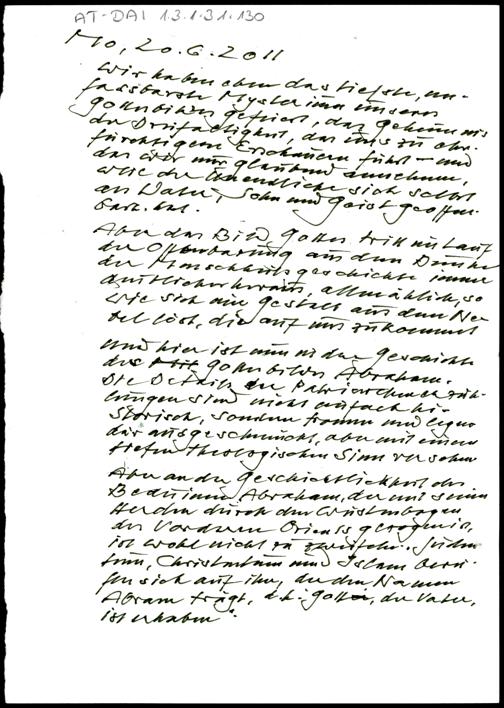 AT-DAI 1.3.1.31.130
Mo, 20.6.2011
Wir haben eben das tiefste, un-
fassbarste Mysterium unseres
Gottesbildes gefeiert, das Geheimnis
der Dreifaltigkeit, das uns zu ehr-
fürchtigem Erschauern führt – und
das wir nur glaubend annehmen,
wie der Unendliche sich selbst
als Vater, Sohn und Geist geoffen-
bart hat.
Aber das Bild Gottes tritt im Lauf
der Offenbarung aus dem Dunkel
der Menschheitsgeschichte immer
deutlicher heraus, allmählich, so
wie sich eine Gestalt aus dem Ne-
bel löst, die auf uns zukommt
Und hier ist nun in der Geschichte
des Gottesbildes Abraham.
Die Details der Patriarchenerzäh-
lungen sind nicht einfach hi-
storisch, sondern fromm und legen-
där ausgeschmückt, aber mit einem
tiefen theologischen Sinn versehen
Aber an der Geschichtlichkeit des
Beduinen Abraham, der mit seinen
Herden durch den Wüstenbogen
des Vorderen Orients gezogen ist,
ist wohl nicht zu zweifeln. Juden-
tum, Christentum und Islam beru-
fen sich auf ihn, der den Namen
Abram trägt, d.h. Gott, der Vater,
ist erhaben".